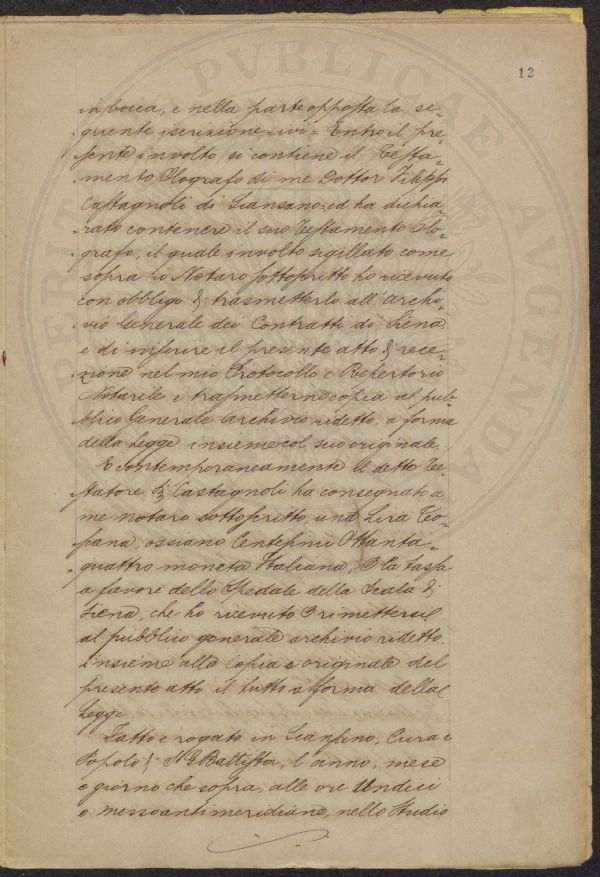 12
in bocca, e nella parte opposta la se-
quente iscrizione = ivi = Entro il pre-
sente involto si contiene il Testa-
mento Olografo di me Dottor Filippo
Castagnoli di Scansano, ed ha dichia-
rato contenere il suo Testamento Olo-
grafo, il quale involto sigillato come
sopra io Notaro sottoscritto ho ricevuto
con obbligo di trasmetterlo all'archi-
vio Generale dei Contratti di Siena
e di inserire il presente atto di rece-
zione nel mio Protocollo e Repertorio
Notarile e trasmetterne copia al pub-
blico Generale archivio ridetto, a forma
della Legge insieme col suo originale.
E contemporaneamente il detto Te-
statore Castagnoli ha consegnato a
me notaro sottoscritto una Lira To-
scana, ossiano Centesimi Ottanta-
quattro moneta Italiana, la tassa
a favore dello Spedale della Scala di
Siena, che ho ricevuto rimettersi
al pubblico generale archivio ridetto,
insieme alla copia e originale del
presente atto il tutto a forma della
Legge
Fatto e rogato in Scansano, Cura e
Popolo di S. G. Battista, l'anno, mese
e giorno che sopra, alle ore Undici
e mezzo antimeridiane, nello Studio
PERIT PVBLICAE AVGENDA